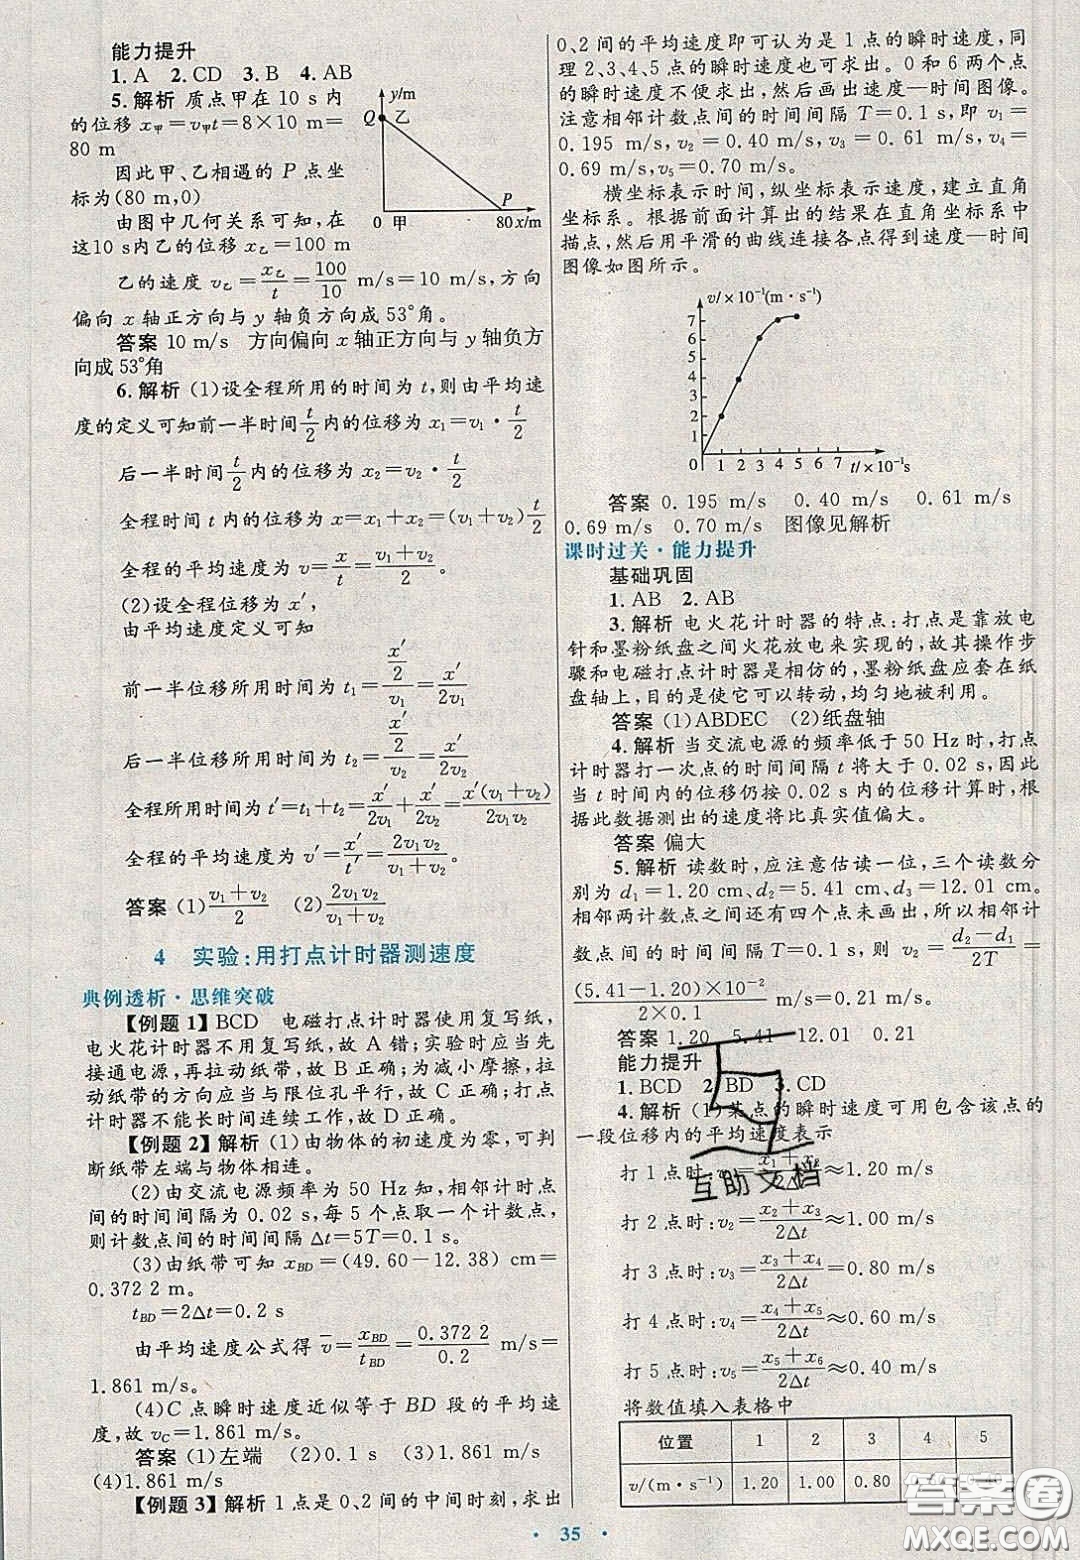 能力提升
1. A 2. CD 3. B 4. AB
5. 解析 质点甲在 10 s 内
的位移 x甲=v甲t=8×10 m=
80 m
因此甲、乙相遇的 P 点坐
标为(80 m,0)
由图中几何关系可知,在
这10 s内乙的位移 x乙=100 m
乙的速度 v乙=x乙/t=100/10 m/s=10 m/s,方向
偏向 x 轴正方向与 y 轴负方向成 53°角。
y/m
Q 乙
P
0 甲 80 x/m
答案 10 m/s 方向偏向 x 轴正方向与 y 轴负方
向成 53°角
6. 解析 (1)设全程所用的时间为 t,则由平均速
度的定义可知前一半时间 t/2 内的位移为 x₁=v₁·t/2
后一半时间 t/2 内的位移为 x₂=v₂·t/2
全程时间 t 内的位移为 x=x₁+x₂=(v₁+v₂)t/2
全程的平均速度为 v=x/t=(v₁+v₂)/2。
(2)设全程位移为 x′,
由平均速度定义可知
前一半位移所用时间为 t₁=(x′/2)/v₁=x′/2v₁
后一半位移所用时间为 t₂=(x′/2)/v₂=x′/2v₂
全程所用时间为 t′=t₁+t₂=x′/2v₁+x′/2v₂=x′(v₁+v₂)/2v₁v₂
全程的平均速度为 v′=x′/t′=2v₁v₂/(v₁+v₂)。
答案 (1)(v₁+v₂)/2 (2)2v₁v₂/(v₁+v₂)
4 实验:用打点计时器测速度
典例透析·思维突破
【例题 1】BCD 电磁打点计时器使用复写纸,
电火花计时器不用复写纸,故 A 错;实验时应当先
接通电源,再拉动纸带,故 B 正确;为减小摩擦,拉
动纸带的方向应当与限位孔平行,故 C 正确;打点
计时器不能长时间连续工作,故 D 正确。
【例题 2】解析 (1)由物体的初速度为零,可判
断纸带左端与物体相连。
(2)由交流电源频率为 50 Hz 知,相邻计时点
间的时间间隔为 0.02 s,每 5 个点取一个计数点,
则计数点间的时间间隔 Δt=5T=0.1 s。
(3)由纸带可知 xBD=(49.60-12.38) cm=
0.372 2 m。
tBD=2Δt=0.2 s
由平均速度公式得 v̄=xBD/tBD=0.372 2/0.2 m/s=
1.861 m/s。
(4)C 点瞬时速度近似等于 BD 段的平均速
度,故 vC=1.861 m/s。
答案 (1)左端 (2)0.1 s (3)1.861 m/s
(4)1.861 m/s
【例题 3】解析 1 点是 0、2 间的中间时刻,求出
0、2 间的平均速度即可认为是 1 点的瞬时速度,同
理 2、3、4、5 点的瞬时速度也可求出。0 和 6 两个点
的瞬时速度不便求出,然后画出速度—时间图像。
注意相邻计数点间的时间间隔 T=0.1 s,即 v₁=
0.195 m/s,v₂=0.40 m/s,v₃=0.61 m/s,v₄=
0.69 m/s,v₅=0.70 m/s。
横坐标表示时间,纵坐标表示速度,建立直角
坐标系。根据前面计算出的结果在直角坐标系中
描点,然后用平滑的曲线连接各点得到速度—时间
图像如图所示。
v/×10⁻¹(m·s⁻¹)
7
6
5
4
3
2
1
0 1 2 3 4 5 6 7 t/×10⁻¹s
答案 0.195 m/s 0.40 m/s 0.61 m/s
0.69 m/s 0.70 m/s 图像见解析
课时过关·能力提升
基础巩固
1. AB 2. AB
3. 解析 电火花计时器的特点:打点是靠放电
针和墨粉纸盘之间火花放电来实现的,故其操作步
骤和电磁打点计时器是相仿的,墨粉纸盘应套在纸
盘轴上,目的是使它可以转动,均匀地被利用。
答案 (1)ABDEC (2)纸盘轴
4. 解析 当交流电源的频率低于 50 Hz 时,打点
计时器打一次点的时间间隔 t 将大于 0.02 s,因此
当 t 时间内的位移仍按 0.02 s 内的位移计算时,根
据此数据测出的速度将比真实值偏大。
答案 偏大
5. 解析 读数时,应注意估读一位,三个读数分
别为 d₁=1.20 cm、d₂=5.41 cm、d₃=12.01 cm。
相邻两计数点之间还有四个点未画出,所以相邻计
数点间的时间间隔 T=0.1 s,则 v₂=(d₂-d₁)/2T=
(5.41-1.20)×10⁻²/2×0.1 m/s=0.21 m/s。
答案 1.20 5.41 12.01 0.21
能力提升
1. BCD 2. BD 3. CD
4. 解析 (1)某点的瞬时速度可用包含该点的
一段位移内的平均速度表示
打 1 点时:v₁=(x₁+x₂)/2Δt≈1.20 m/s
打 2 点时:v₂=(x₂+x₃)/2Δt≈1.00 m/s
打 3 点时:v₃=(x₃+x₄)/2Δt≈0.80 m/s
打 4 点时:v₄=(x₄+x₅)/2Δt≈0.60 m/s
打 5 点时:v₅=(x₅+x₆)/2Δt≈0.40 m/s
将数值填入表格中
位置 1 2 3 4 5
v/(m·s⁻¹) 1.20 1.00 0.80
互助文档
答案圈
MXQE.COM
· 35 ·